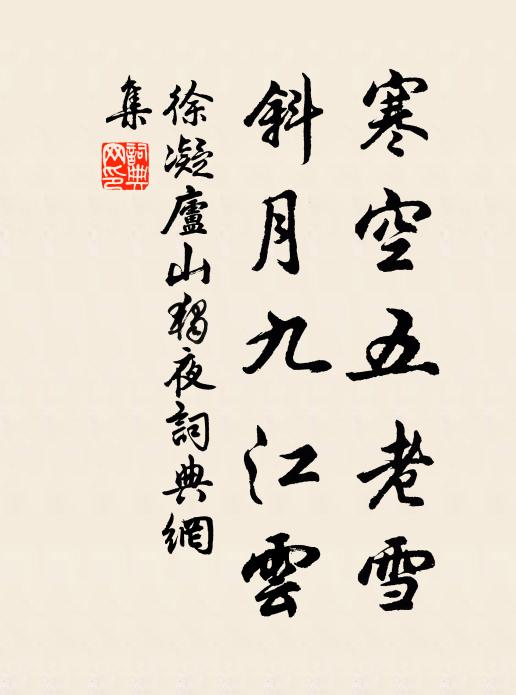 寒空五老雪
斜月九江雲
徐凝廬山獨夜詞典網
集
詞典
网印